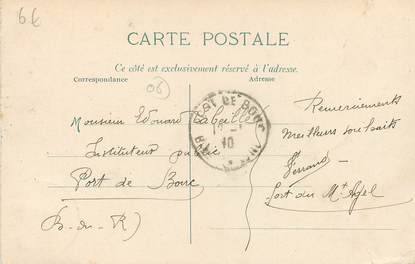 6€
CARTE POSTALE
Ce côté est exclusivement réservé à l'adresse.
Correspondance
Adresse
06
Monsieur Edouard Abeille
Instituteur public
Port de Bouc
(B-du-R)
PORT DE BOUC
10
Remerciements
meilleurs souhaits
Ferrand
fort du Mt Agel